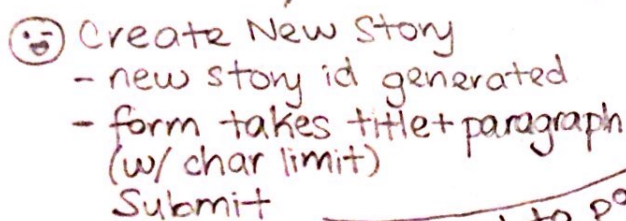 Create New Story
- new story id generated
- form takes title + paragraph
(w/ char limit)
Submit
to